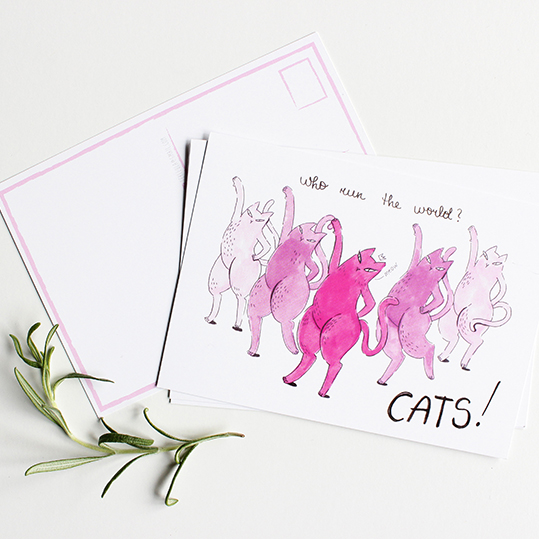 who run the world?
CATS!